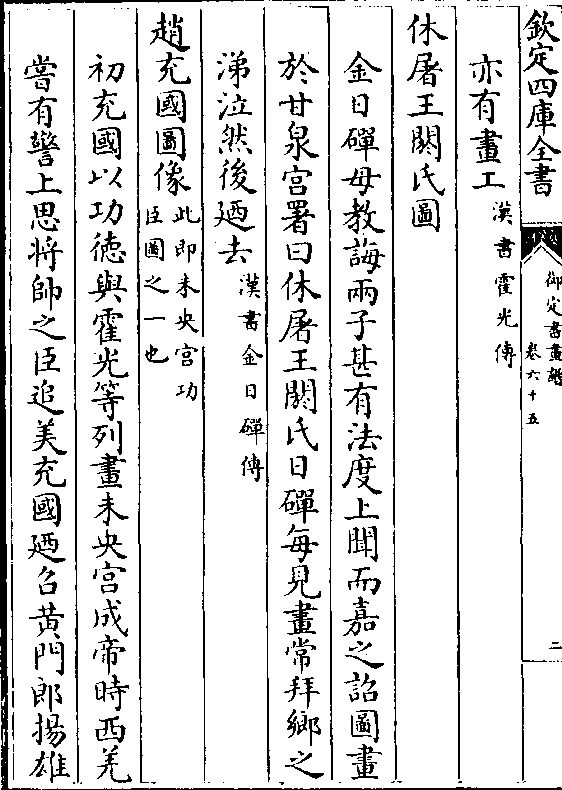 欽定四庫全書
御定書畫譜
卷六十五
二
亦有畫工漢書霍光傳
休屠王閼氏圖
金日磾母教誨兩子甚有法度上聞而嘉之詔圖畫
於甘泉宫署曰休屠王閼氏日磾每見畫常拜鄉之
涕泣然後廼去漢書金日磾傳
趙充國圖像此即未央宫功臣圖之一也
初充國以功德與霍光等列畫未央宫成帝時西羌
嘗有警上思將帥之臣追美充國廼召黄門郎揚雄